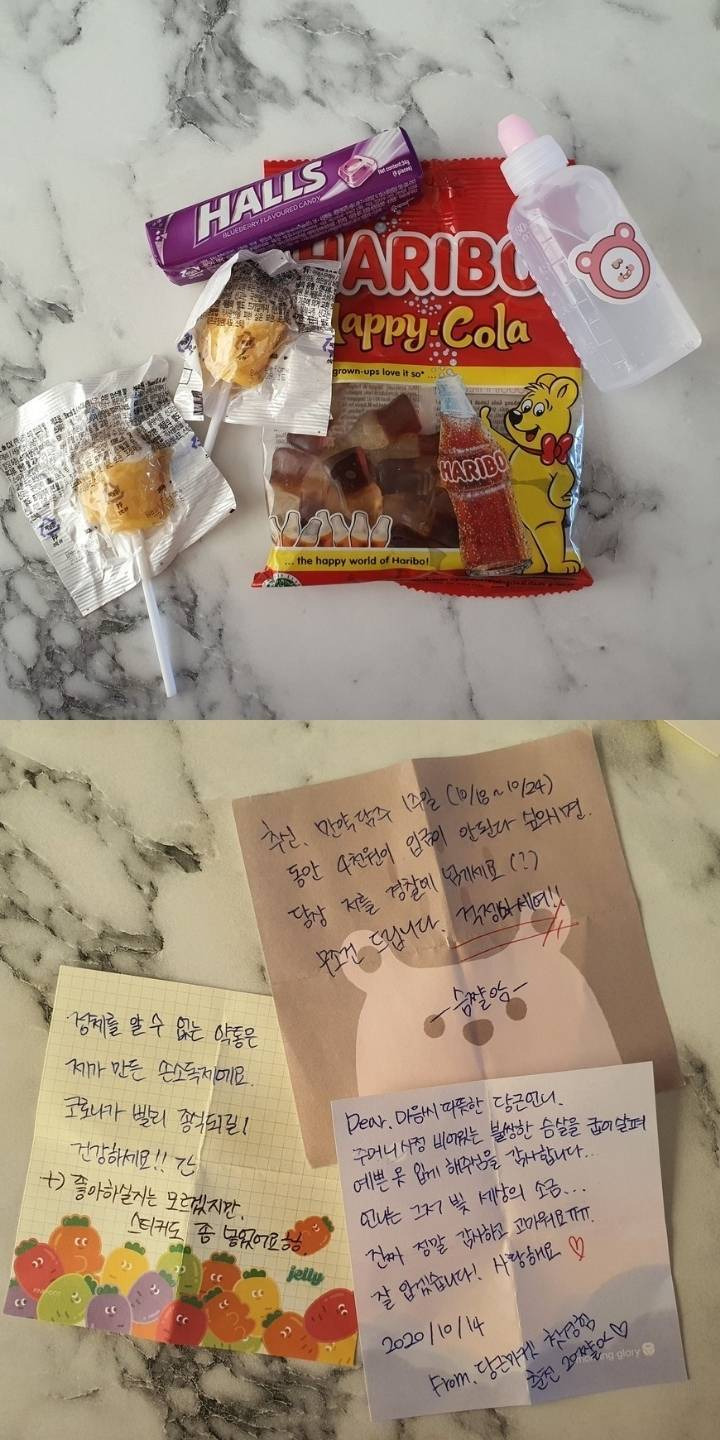 HALLS
BLUEBERRY FLAVOURED CANDY
Net content:34g
(9 pieces)
HARIBO
Happy-Cola
grown-ups love it so* ...
HARIBO
... the happy world of Haribo!
추신. 만약 담주 1주일 (10/18~10/24)
동안 4천원이 입금이 안된다 싶으시면.
당장 저를 경찰에 넘기세요(?)
무조건 드립니다. 걱정마세여!!
정체를 알 수 없는 약통은
제가 만든 손소독제에요.
코로나가 빨리 종식되길!
건강하세요!! 간
+) 좋아하실지는 모르겠지만.
스티커도 좀 넣었어요ㅎㅎ
jelly
Dear. 마음씨 따뜻한 당근언니.
주머니 사정 비어있는 불쌍한 슴살을 굽이 살펴
예쁜 옷 입게 해주심을 감사합니다...
언니는 그저 빛 세상의 소금...
진짜 정말 감사하고 고마워요ㅠㅠ.
잘 입겠습니다! 사랑해요 ♡
2020/10/14
From. 당근마켓 첫경험
morning glory